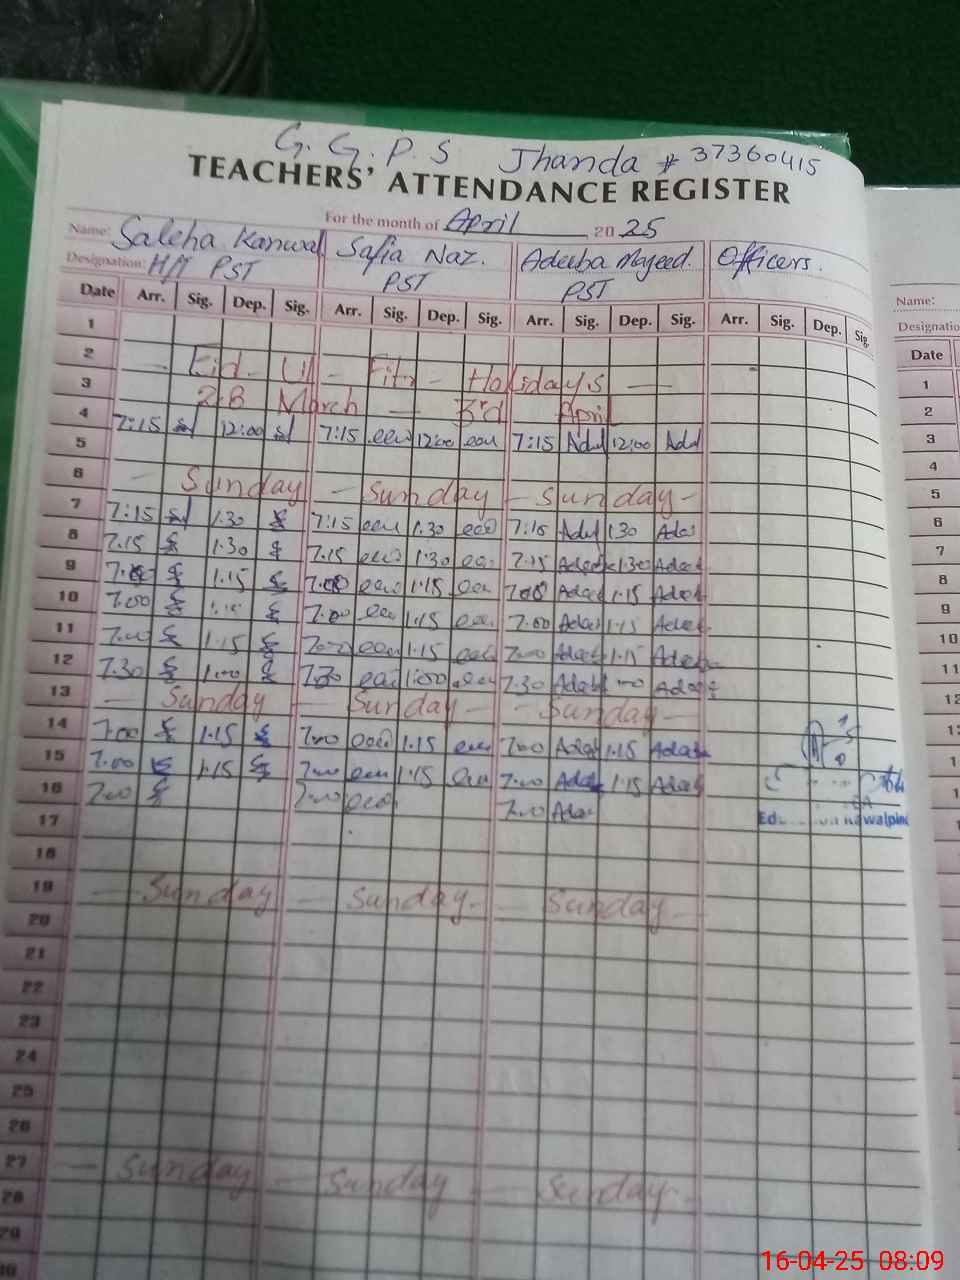 G.G.P.S Jhanda # 37360415
TEACHERS' ATTENDANCE REGISTER
For the month of April 2025
Name: Saleha Kanwal Safia Naz. Adeeba Majeed. Officers.
Designation: H/T PST PST PST
Date Arr. Sig. Dep. Sig. Arr. Sig. Dep. Sig. Arr. Sig. Dep. Sig. Arr. Sig. Dep. Sig.
1
2 — Eid - Ul - Fitr - Holidays —
3 28 March — 3rd April
4 7:15 12:00 7:15 12:00 7:15 12:00
5
6 — Sunday — Sunday — Sunday -
7 7:15 1.30 7:15 1.30 7:15 1.30
8 7.15 1.30 7.15 1.30 7.15 1.30
9 7.00 1.15 7.00 1.15 7.00 1.15
10 7.00 1.15 7.00 1.15 7.00 1.15
11 7.00 1.15 7.00 1.15 7.00 1.15
12 7.30 1.00 7.30 1.00 7.30 1.00
13 — Sunday — Sunday — Sunday —
14 7.00 1.15 7.00 1.15 7.00 1.15
15 7.00 1.15 7.00 1.15 7.00 1.15
16 7.00 7.00 7.00
17
18
19 — Sunday — Sunday — Sunday —
20
21
22
23
24
25
26
27 — Sunday — Sunday — Sunday
28
29
Name:
Date
1
2
3
4
5
6
7
8
9
10
11
12
16-04-25 08:09